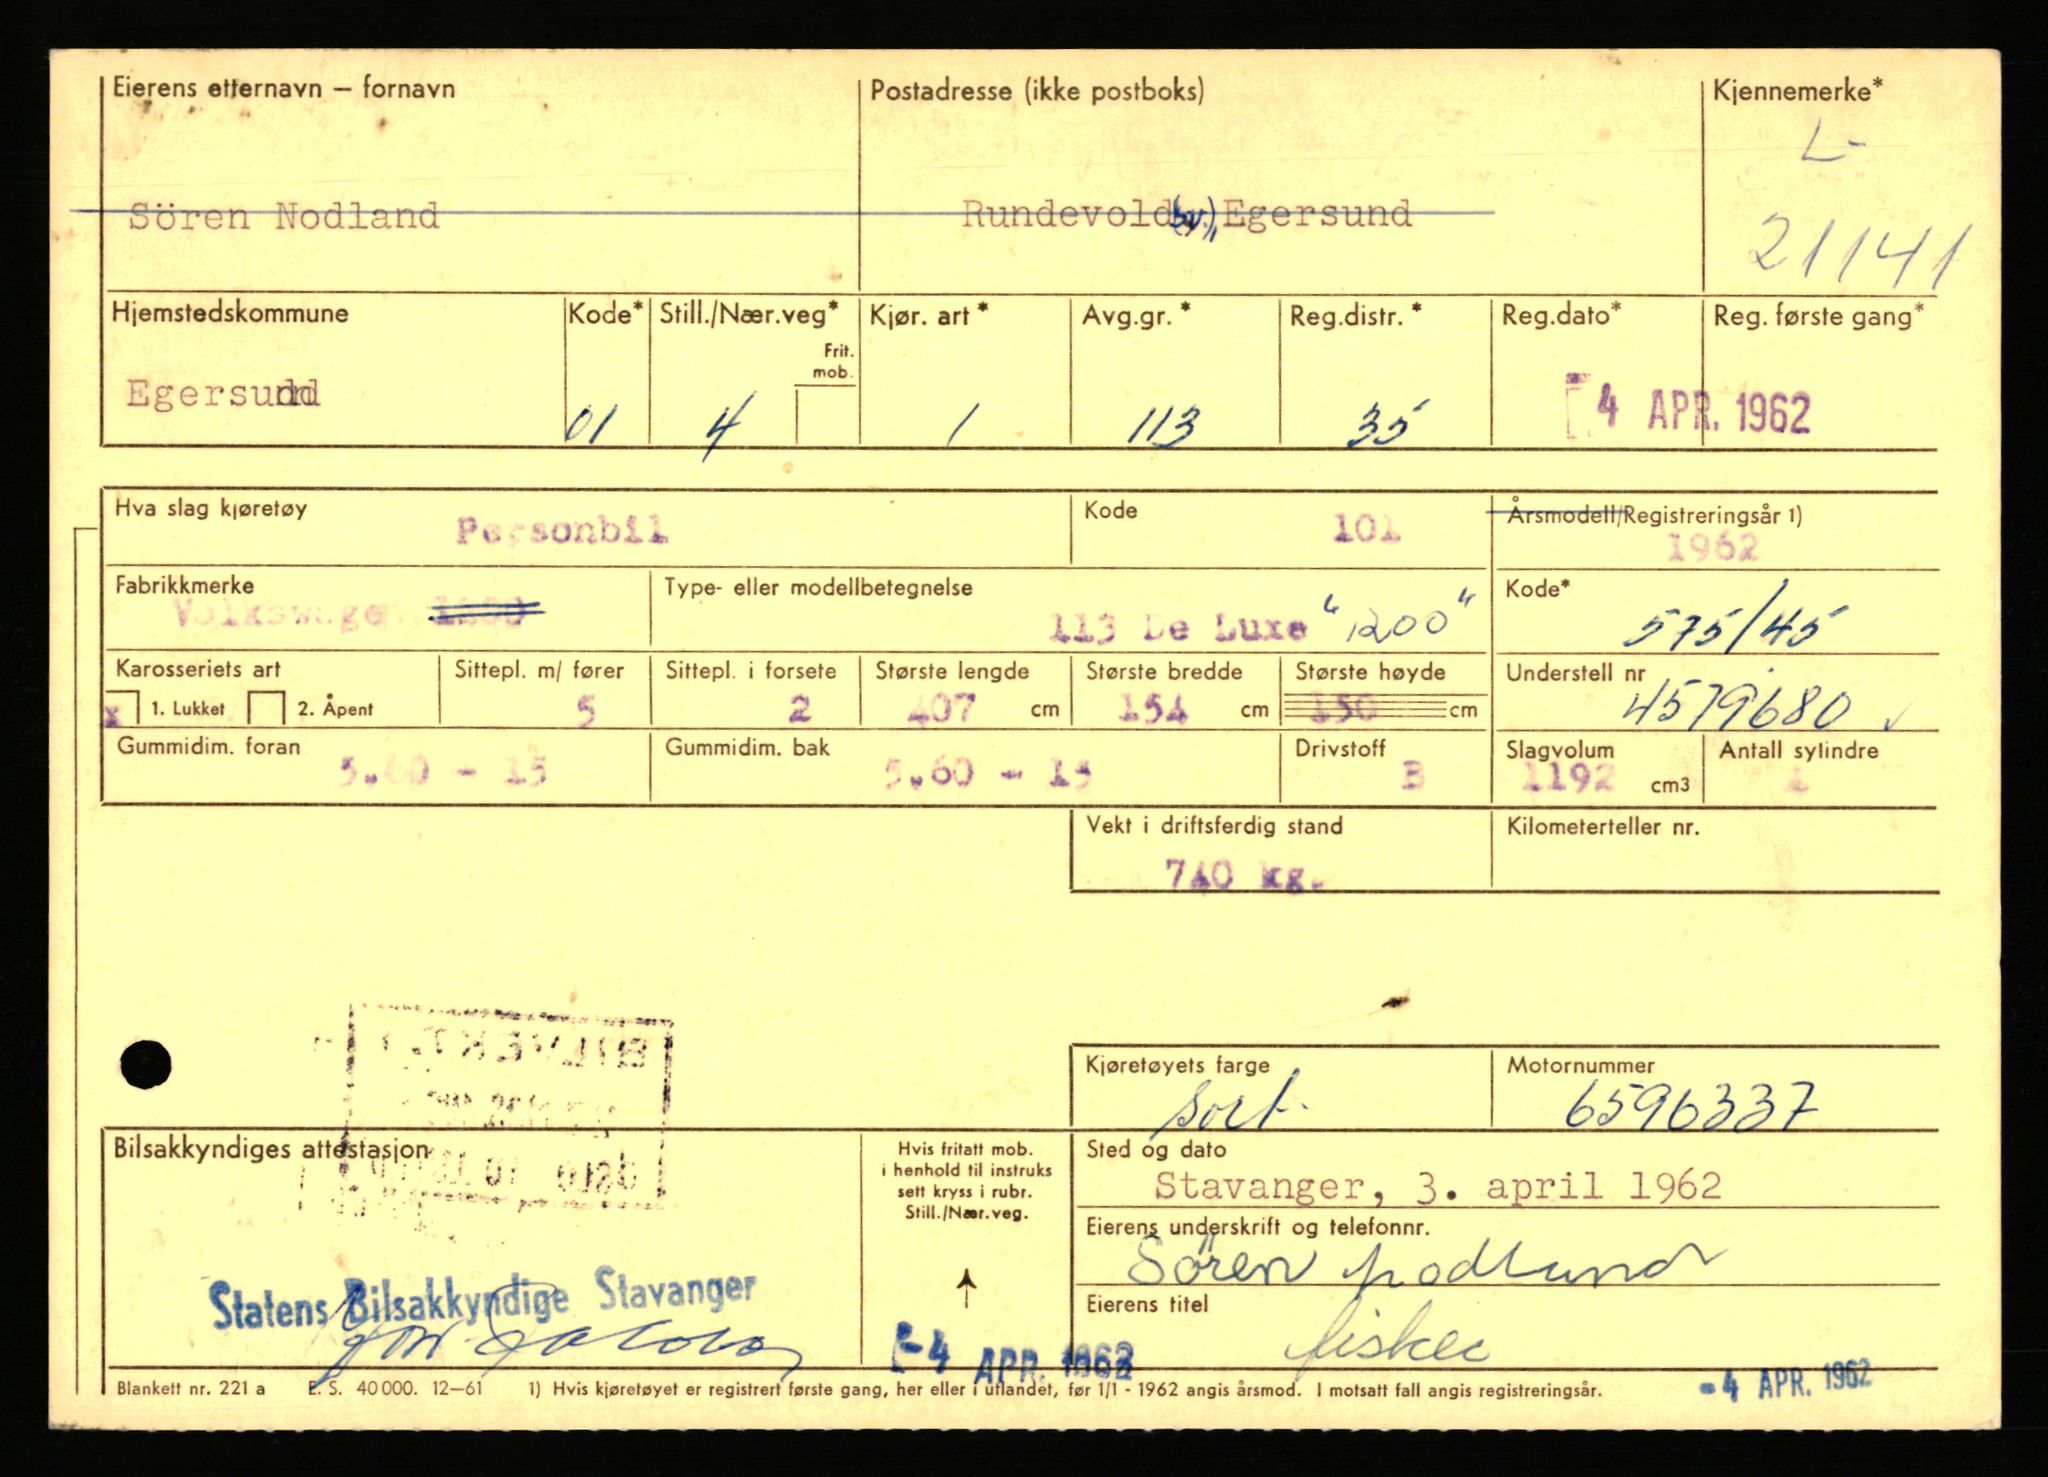 Eierens etternavn — fornavn
Postadresse (ikke postboks)
Kjennemerke*
L-
21141
Sören Nodland
Rundevold (bv.), Egersund
Hjemstedskommune
Kode*
Still./Nær.veg*
Frit. mob.
Kjør. art*
Avg.gr.*
Reg.distr.*
Reg.dato*
Reg. første gang*
Egersund
01
4
1
113
35
-4 APR. 1962
Hva slag kjøretøy
Personbil
Kode
101
Årsmodell/Registreringsår 1)
1962
Fabrikkmerke
Volkswagen 1200
Type- eller modellbetegnelse
113 De Luxe "1200"
Kode*
575/45
Karosseriets art
x 1. Lukket 2. Åpent
Sittepl. m/ fører
5
Sittepl. i forsete
2
Største lengde
407 cm
Største bredde
154 cm
Største høyde
150 cm
Understell nr
4579680
Gummidim. foran
5.60 - 15
Gummidim. bak
5.60 - 15
Drivstoff
B
Slagvolum
1192 cm3
Antall sylindre
4
Vekt i driftsferdig stand
740 kg.
Kilometerteller nr.
BILVERK
OSLO
Kjøretøyets farge
sort.
Motornummer
6596337
Bilsakkyndiges attestasjon
Hvis fritatt mob.
i henhold til instruks
sett kryss i rubr.
Still./Nær.veg.
Sted og dato
Stavanger, 3. april 1962
Eierens underskrift og telefonnr.
Søren Nodland
Statens Bilsakkyndige Stavanger
Eierens titel
fisker
-4 APR. 1962
-4 APR. 1962
Blankett nr. 221 a E. S. 40 000. 12—61 1) Hvis kjøretøyet er registrert første gang, her eller i utlandet, før 1/1 - 1962 angis årsmod. I motsatt fall angis registreringsår.